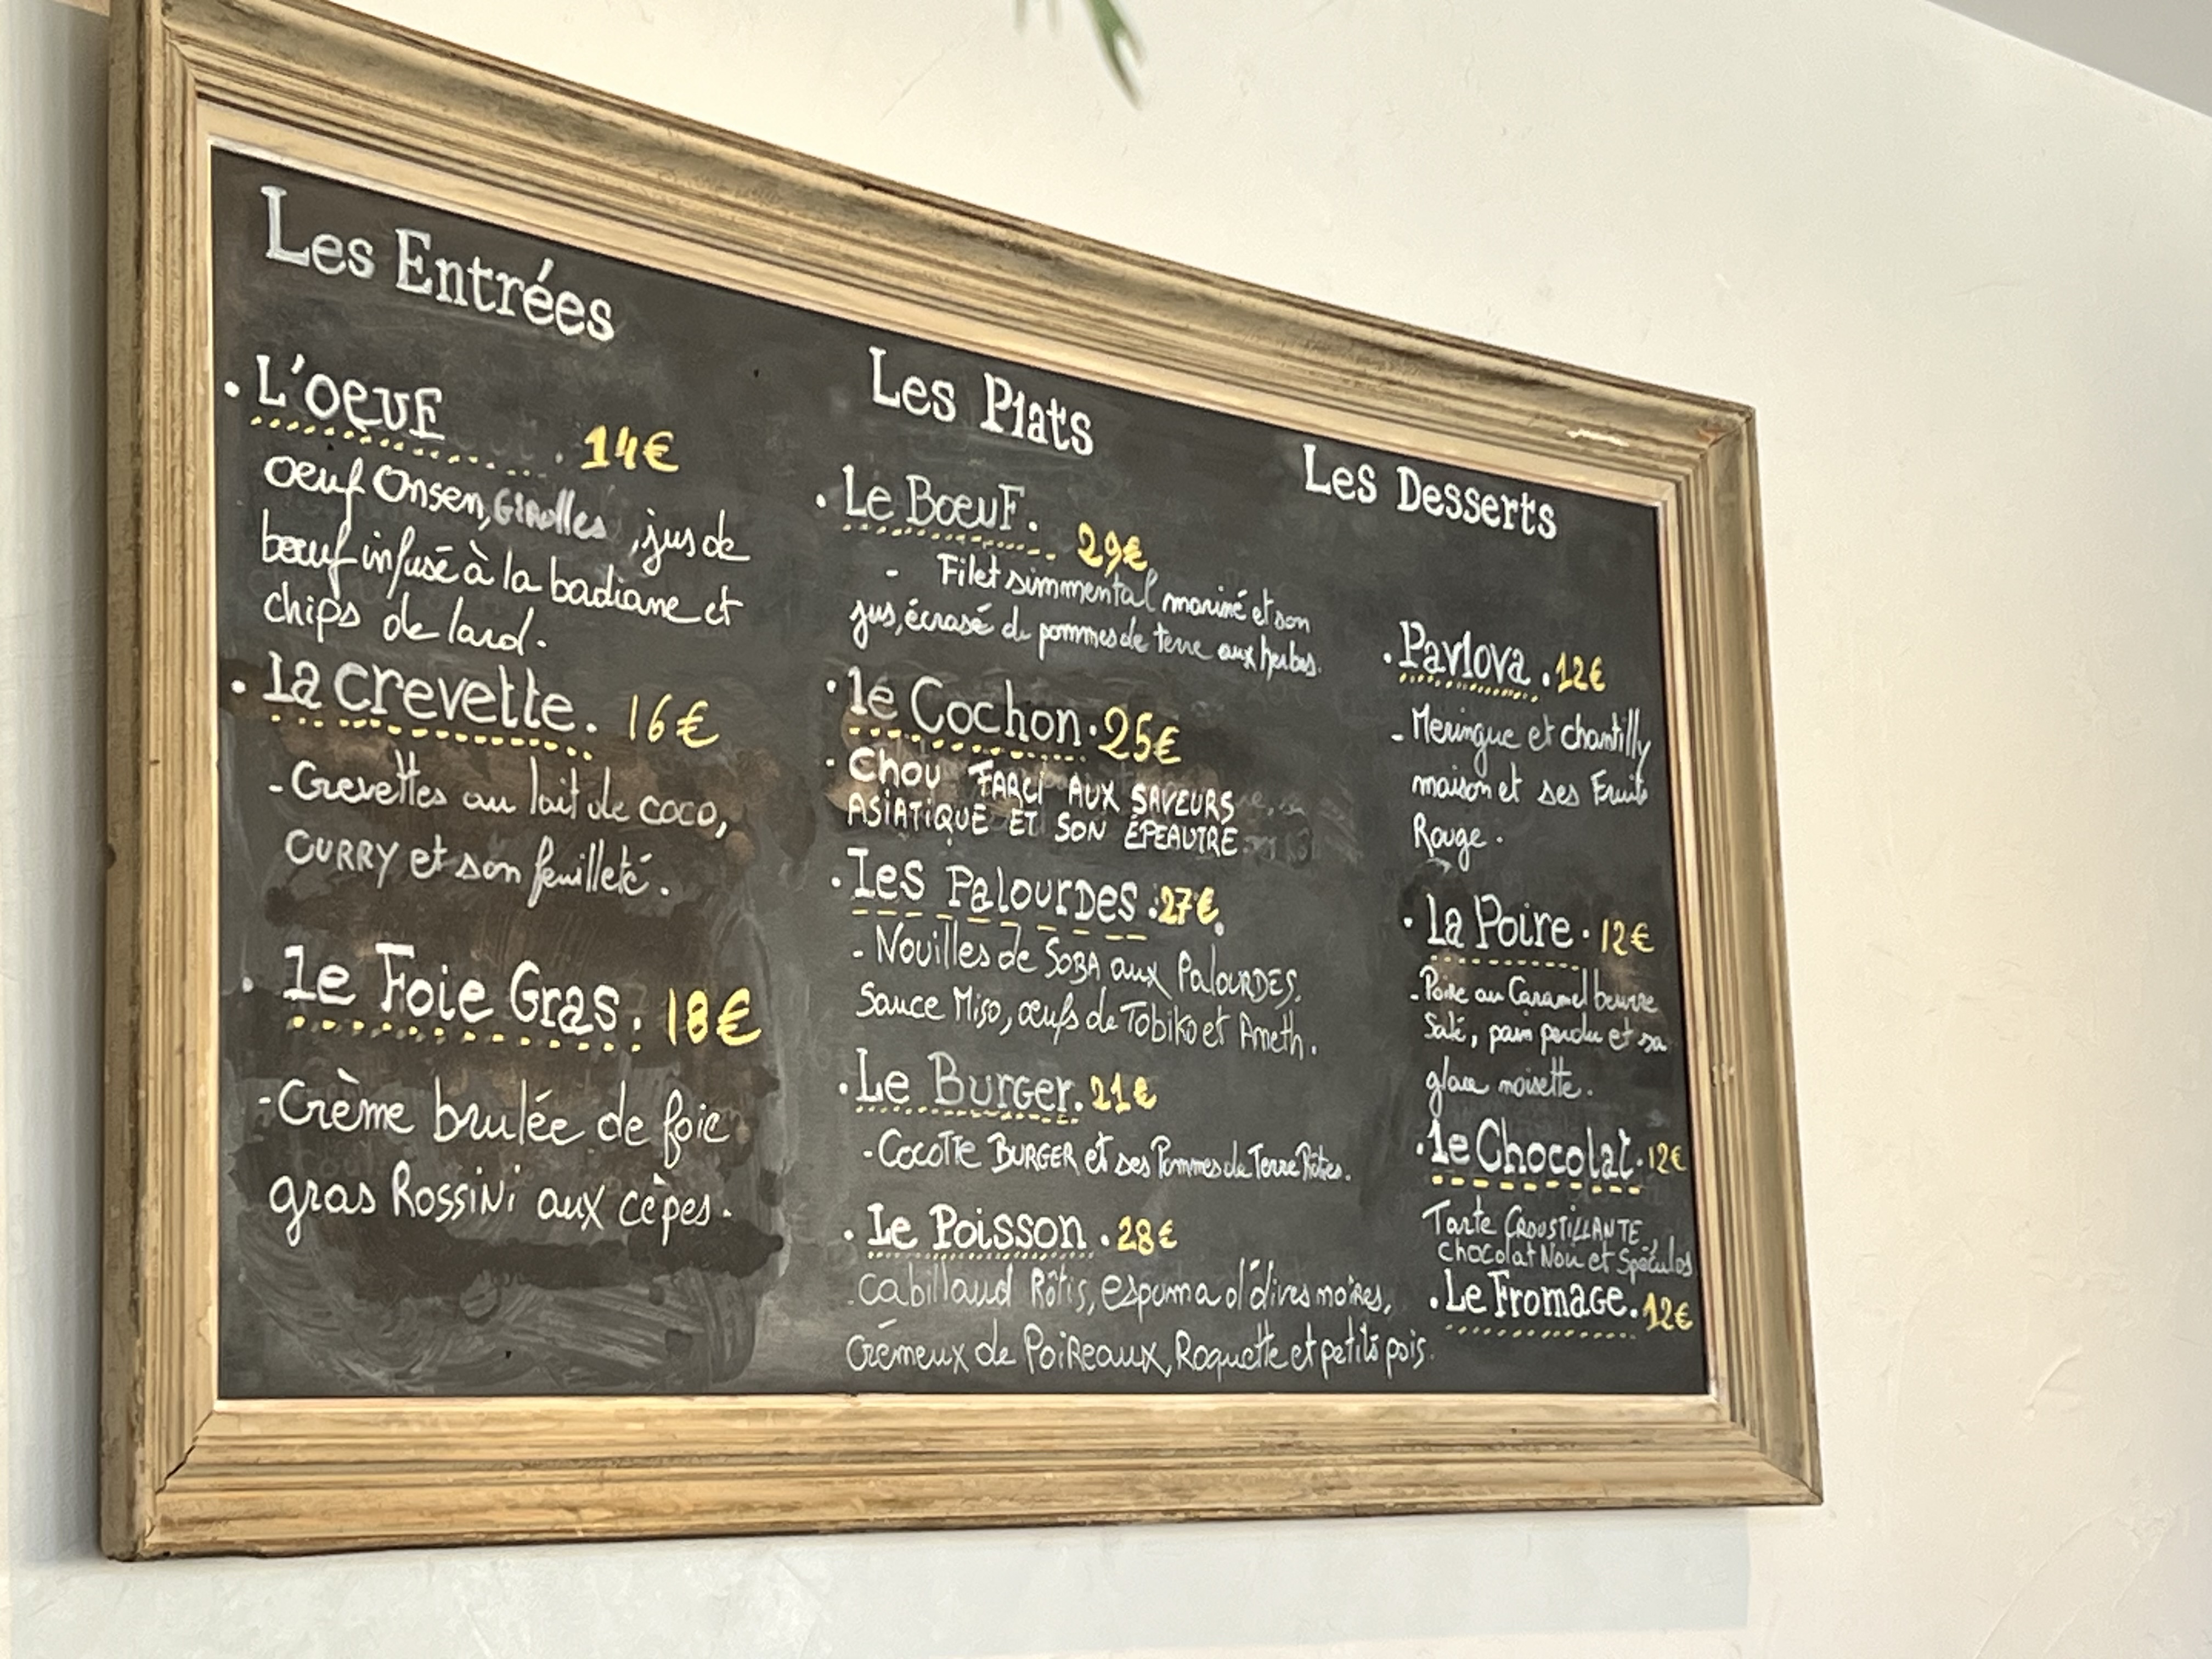 Les Entrées
. L'oeuf . 14€
oeuf Onsen, Girolles, jus de
bœuf infusé à la badiane et
chips de lard.
. La crevette. 16€
- Crevettes au lait de coco,
CURRY et son feuilleté.
. Le Foie Gras. 18€
- Crème brulée de foie
gras ROSSiNi aux cèpes.
Les Plats
. Le Bœuf. 29€
- Filet simmental mariné et son
jus, écrasé de pommes de terre aux herbes.
. Le Cochon. 25€
- CHOU FARCI AUX SAVEURS
ASIATIQUE ET SON ÉPEAUTRE.
. Les Palourdes. 27€
- Nouilles de SOBA aux PALOURDES.
Sauce Miso, œufs de Tobiko et Aneth.
. Le Burger. 21€
- COCOTTE BURGER et ses Pommes de Terre Rôties.
. Le Poisson. 28€
- Cabillaud Rôtis, espuma d'olives noires,
Crémeux de Poireaux, Roquette et petits pois.
Les Desserts
. Pavlova. 12€
- Meringue et chantilly
maison et ses Fruits
Rouge.
. La Poire. 12€
- Poire au Caramel beurre
Salé, pain perdu et sa
glace noisette.
. Le Chocolat. 12€
Tarte CROUSTILLANTE,
chocolat Noir et Spéculos
. Le Fromage. 12€